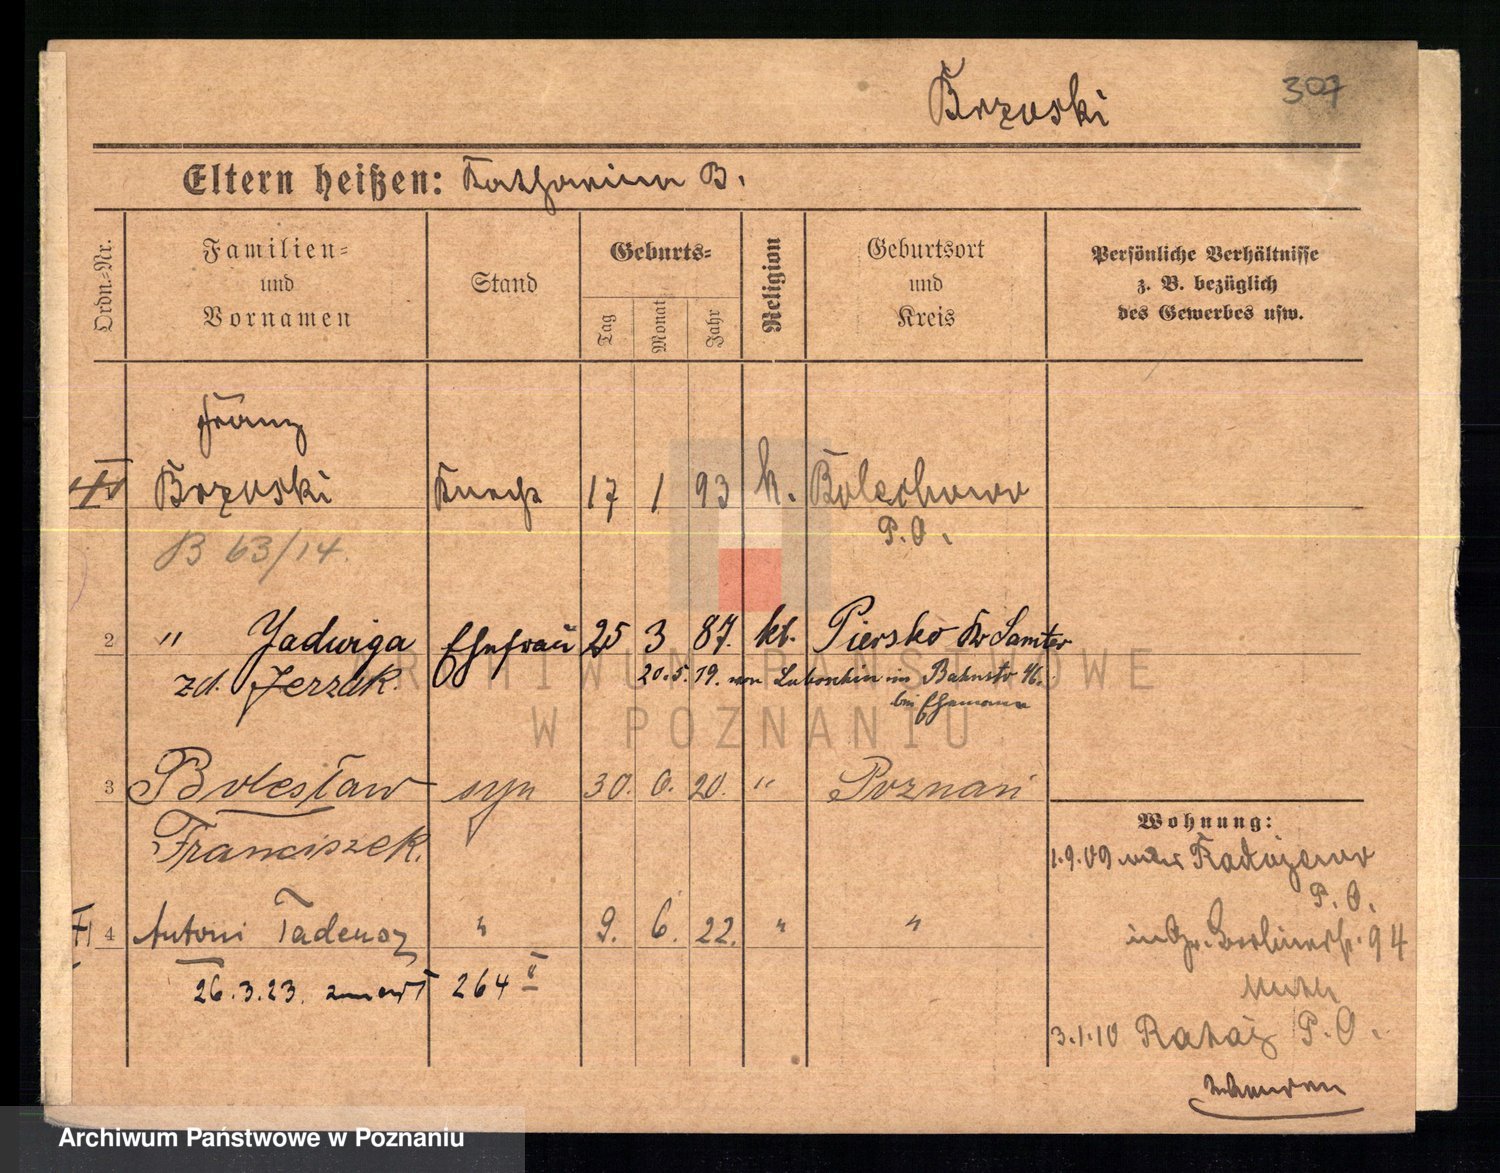 Brzoski 307
Eltern heißen: Katharina B.
Ordn.=Nr. Familien= und Vornamen Stand Geburts= Tag Monat Jahr Religion Geburtsort und Kreis Persönliche Verhältnisse z. B. bezüglich des Gewerbes usw.
Franz
Brzoski Knecht 17 1 93 k. Bolechowo
P. O.
B 63/14.
2 " Jadwiga Ehefrau 25 3 87. kt. Piersko Kr Samter
zd. Jerzak. 20.5.19. von Luboschin in Bahnstr 46.
bei Ehemann
3 Bolesław syn 30. 6. 20. " Poznań
Franciszek.
4 Antoni Tadeusz " 9. 6. 22. " "
26.3.23. zmarł 264 II
Wohnung:
1.9.09 von Radojewo
P. O.
in Gr. Berlinerstr. 94
3.1.10 Rataj P. O.
ARCHIWUM PAŃSTWOWE
W POZNANIU
Archiwum Państwowe w Poznaniu